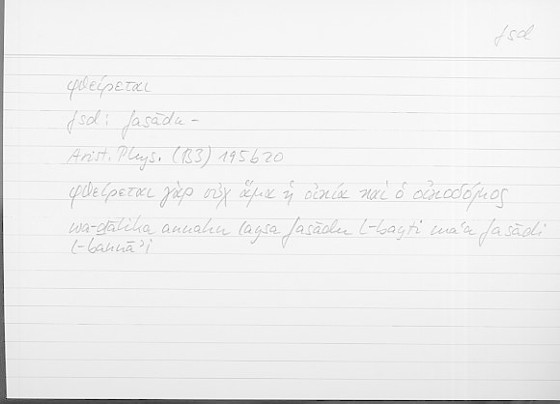 fsd
φθείρεται
fsd: fasādu –
Arist. Phys. (B3) 195b20
φθείρεται γὰρ οὐχ ἅμα ἡ οἰκία καὶ ὁ οἰκοδόμος
wa-ḏālika annahu laysa fasādu l-bayti ma‘a fasādi
l-bannā’i